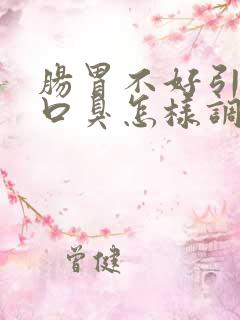 腸胃不好引
口臭怎樣調
曾健